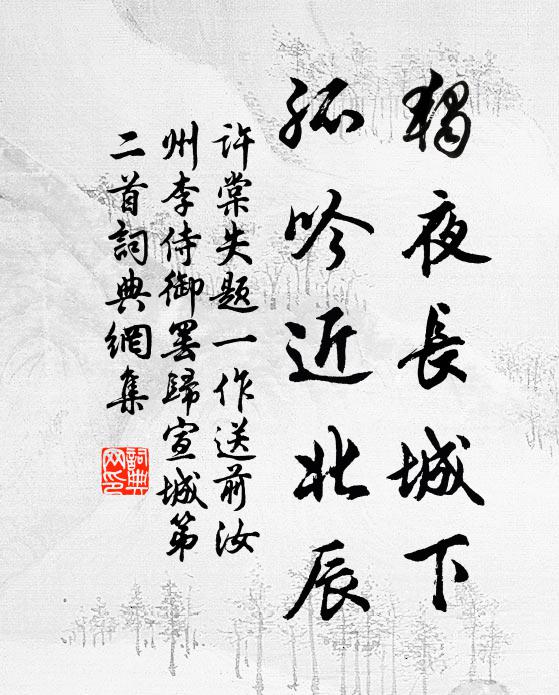 獨夜長城下
孤吟近北辰
許棠失題一作送前汝
州李侍御罷歸宣城第
二首詞典網集
詞典
网印